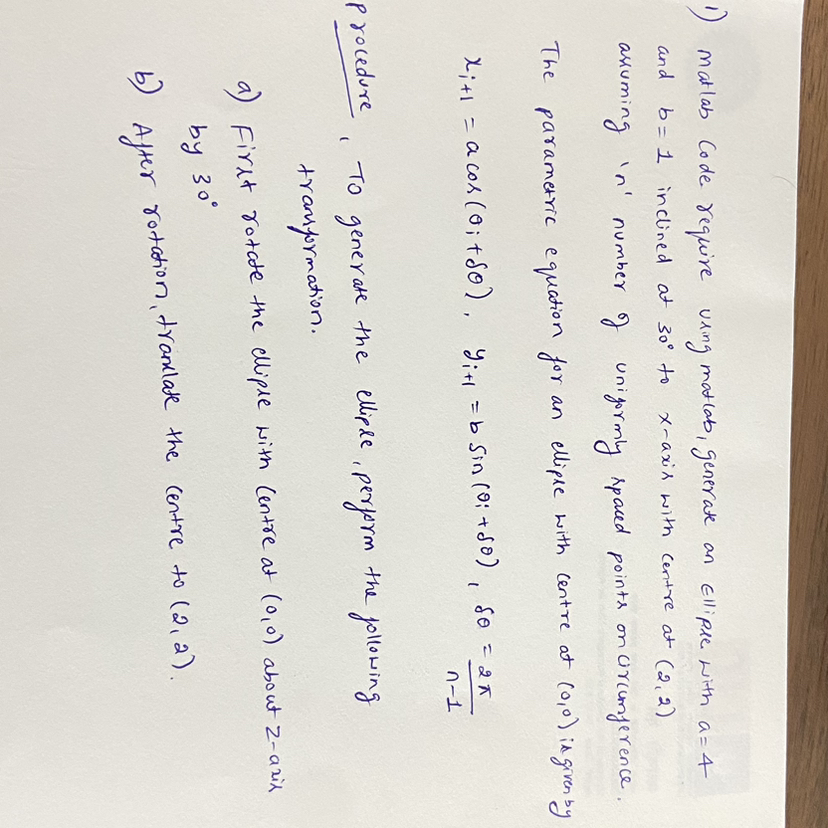 1) Matlab Code require using matlab, generate an Ellipse with a=4
and b=1 inclined at 30° to x-axis with centre at (2,2)
assuming 'n' number of uniformly spaced points on circumference.
The parametric equation for an ellipse with centre at (0,0) is given by
x_{i+1} = a cos(θ_i + δθ), y_{i+1} = b sin(θ_i + δθ), δθ = 2π/n-1
Procedure, To generate the ellipse, perform the following
transformation.
a) First rotate the ellipse with centre at (0,0) about z-axis
by 30°
b) After rotation, translate the centre to (2,2).